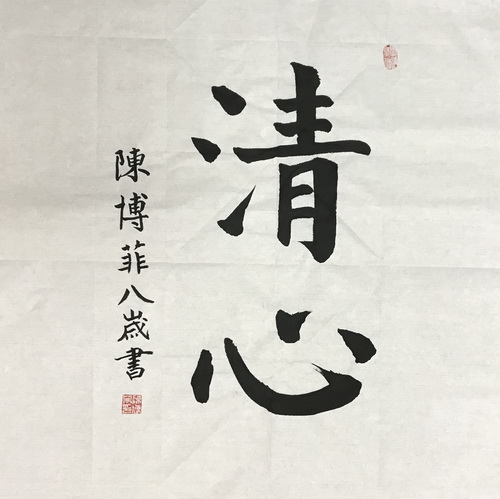 清心
陳博菲八歲書